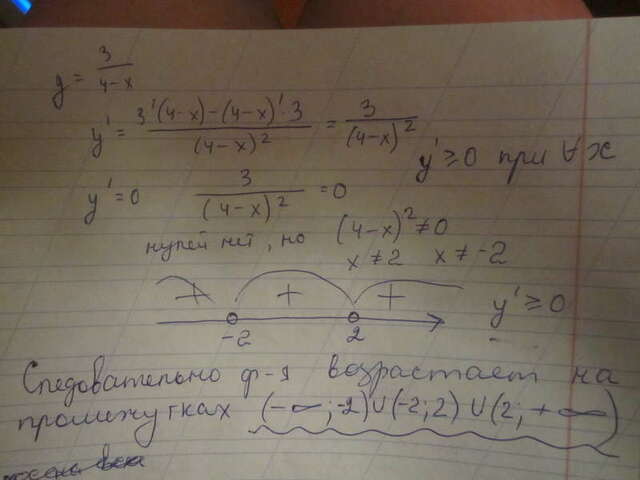 y = 3/(4-x)
y' = (3'(4-x)-(4-x)'·3)/(4-x)² = 3/(4-x)²
y' ≥ 0 при ∀ x
y' = 0 3/(4-x)² = 0
нулей нет, но (4-x)² ≠ 0
x ≠ 2 x ≠ -2
+ + + y' ≥ 0
-2 2
Следовательно ф-я возрастает на
промижутках (-∞;-2)∪(-2;2)∪(2;+∞)